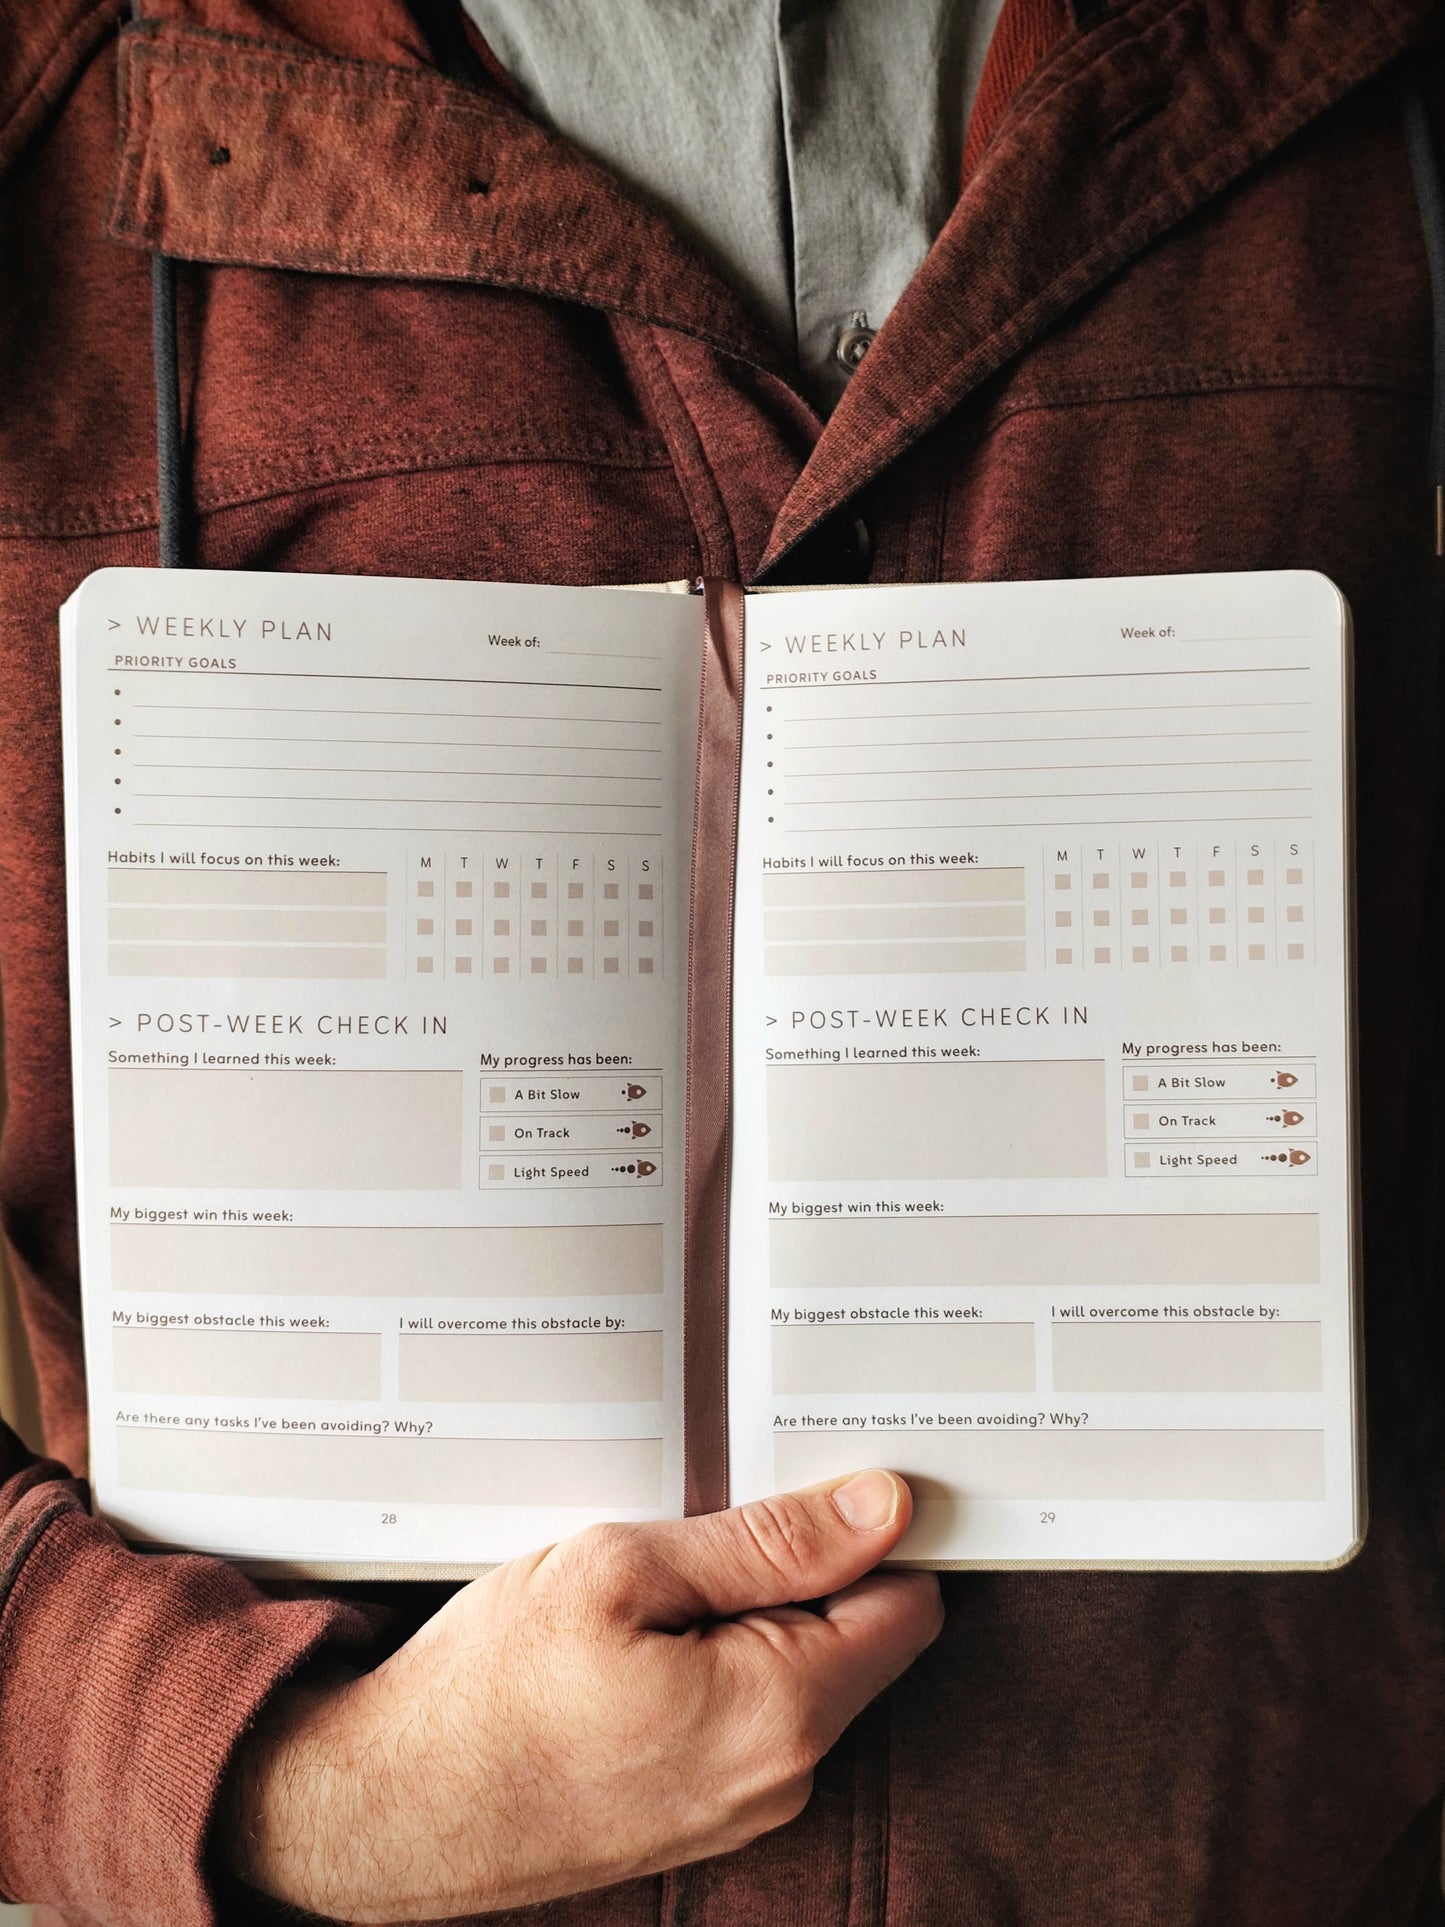 > WEEKLY PLAN
Week of:
PRIORITY GOALS
Habits I will focus on this week:
M T W T F S S
> POST-WEEK CHECK IN
Something I learned this week:
My progress has been:
A Bit Slow
On Track
Light Speed
My biggest win this week:
My biggest obstacle this week:
I will overcome this obstacle by:
Are there any tasks I've been avoiding? Why?
28
> WEEKLY PLAN
Week of:
PRIORITY GOALS
Habits I will focus on this week:
M T W T F S S
> POST-WEEK CHECK IN
Something I learned this week:
My progress has been:
A Bit Slow
On Track
Light Speed
My biggest win this week:
My biggest obstacle this week:
I will overcome this obstacle by:
Are there any tasks I've been avoiding? Why?
29